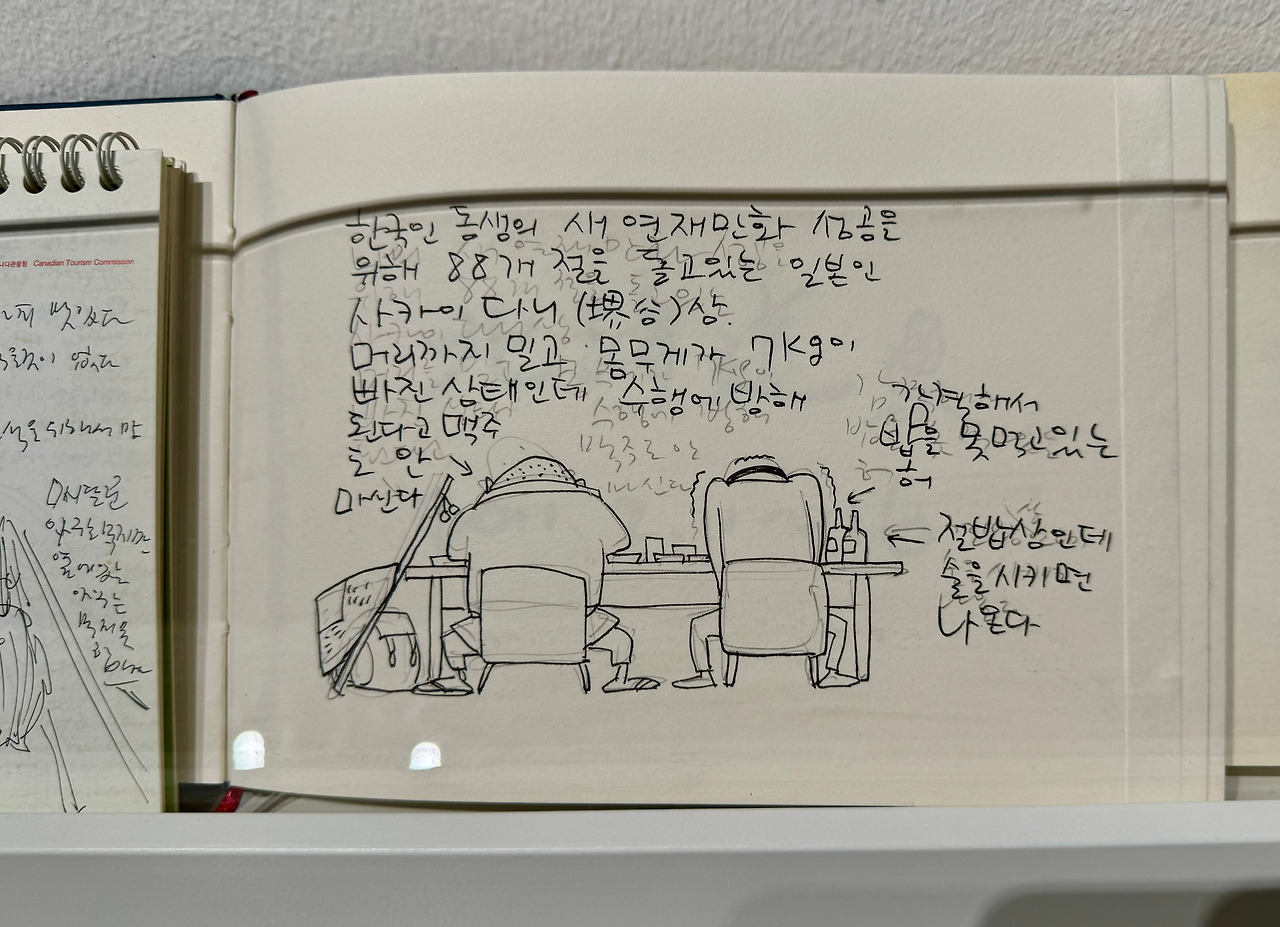 나다관광청 Canadian Tourism Commission
맛있다
없다
한국인 동생의 새 연재만화 성공을
위해 88개 절을 돌고있는 일본인
사카이 다니 (堺谷)상.
머리까지 밀고 몸무게가 7kg이
빠진 상태인데 수행에 방해
된다고 맥주
도 안
마신다
감격해서
밥을 못먹고있는
허
절밥상인데
술을 시키면
나온다